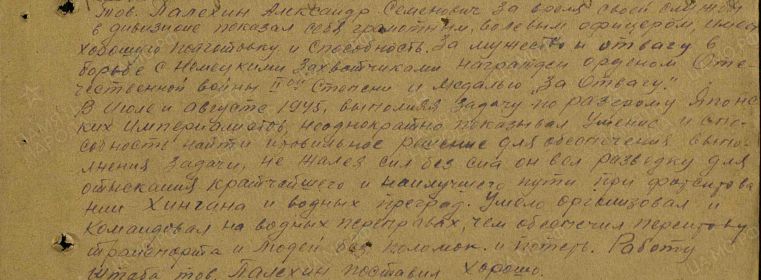 Тов. Палехин Александр Семенович за время своей службы
в дивизионе показал себя грамотным, волевым офицером, имеет
хорошую подготовку и способность. За мужество и отвагу в
борьбе с Немецкими Захватчиками награжден орденом Оте-
чественной войны IIой степени и медалью „За Отвагу".
В июле и августе 1945, выполняя задачу по разгрому Японс
ких Империалистов, неоднократно показывал умение и спо-
собность найти правильное решение для обеспечения выпо-
лнения задачи, не жалея сил без сна он вел разведку для
отыскания кратчайшего и наилучшего пути при форсирова
нии Хингана и водных преград. Умело организовал и
командовал на водных переправах, чем обеспечил
транспорта и людей без поломок и потерь. Работу
Штаба тов. Палехин поставил хорошо.